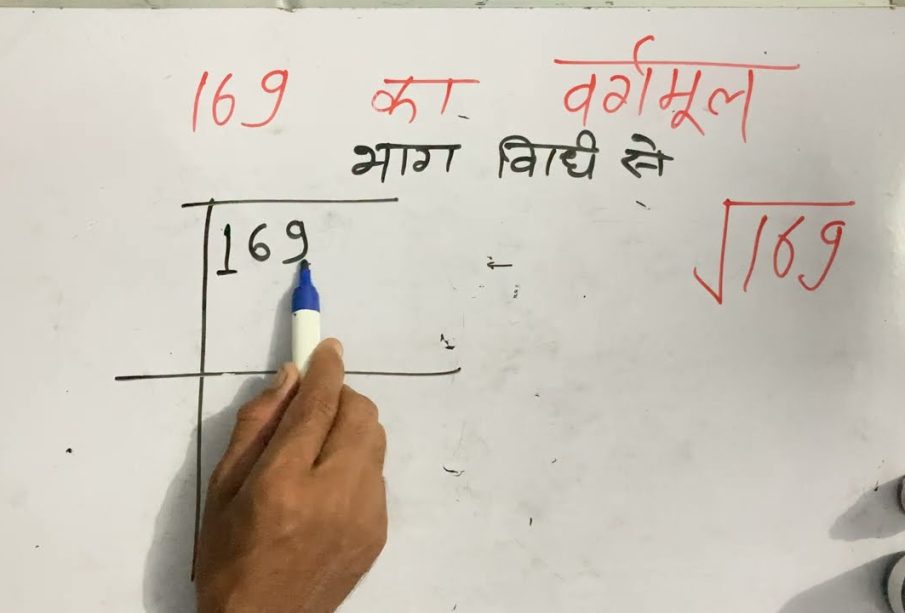 169 का वर्गमूल
भाग विधि से
169
√169